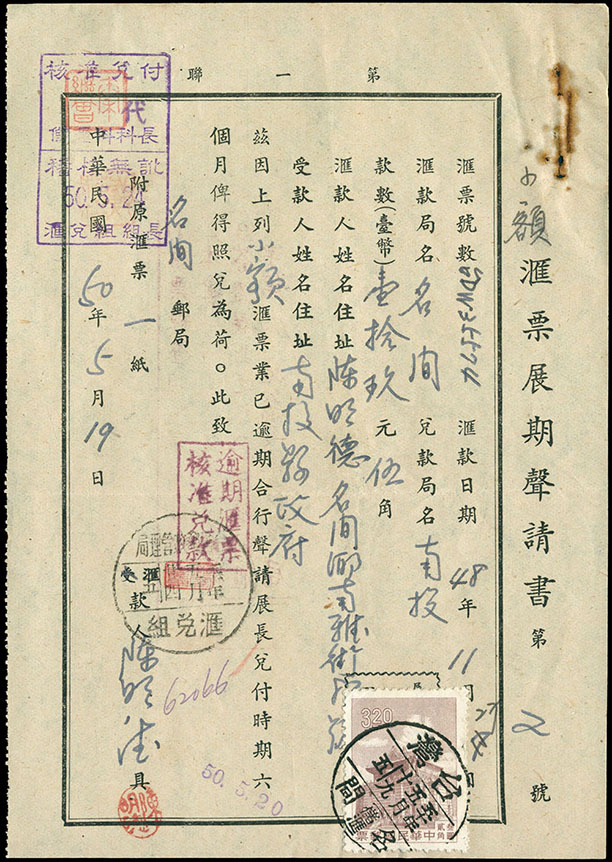 第一聯
小額匯票展期聲請書 第 2 號
匯票號數 匯款日期 48年11月27日
匯款局名 名間 兌款局名 南投
款數(臺幣)壹拾玖元伍角
匯款人姓名住址 陳明德 名間鄉南雅街
受款人姓名住址 南投縣政府
茲因上列小額匯票業已逾期合行聲請展長兌付時期六
個月俾得照兌為荷。此致
名間 郵局
附原匯票一紙
匯受款人 陳明德 具
中華民國 50年5月19日
核准兌付
代
科長
稽核無訛
50.5.24
匯兌組組長
逾期匯票
核准兌款
管理局
匯兌組
62066
50.5.20
320
中華民國郵票
台灣
五十
五十九
名間